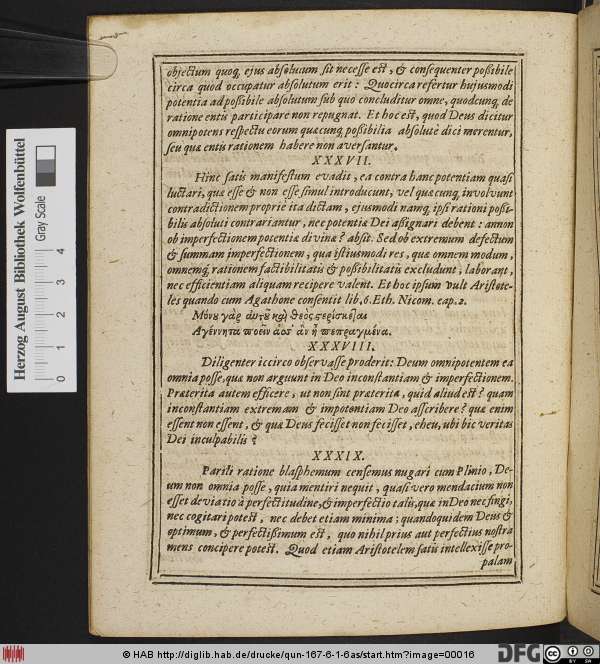 objectum quoq́; ejus absolutum sit necesse est, & consequenter poßibile
circa quod occupatur absolutum erit: Quocirca refertur hujusmodi
potentia ad poßibile absolutum sub quo concluditur omne, quodcunq́; de
ratione entis participare non repugnat. Et hoc est, quod Deus dicitur
omnipotens respectu eorum quæcunq́; poßibilia absolutè dici merentur,
seu quæ entis rationem habere non aversantur.
XXXVII.
Hinc satis manifestum evadit, ea contra hanc potentiam quasi
luctari, quæ esse & non esse simul introducunt, vel quæcunq́; involvunt
contradictionem propriè ita dictam, ejusmodi namq́; ipsi rationi poßi-
bilis absoluti contrariantur, nec potentiæ Dei aßignari debent: annon
ob imperfectionem potentiæ divinæ? absit. Sed ob extremum defectum
& summam imperfectionem, qua istiusmodi res, quæ omnem modum,
omnemq́; rationem factibilitatis & poßibilitatis excludunt, laborant,
nec efficientiam aliquam recipere valent. Et hoc ipsum vult Aristote-
les quando cum Agathone consentit lib. 6. Eth. Nicom. cap. 2.
Μόνου γὰρ ἀυτοῦ καὶ θεὸς στερίσκεται
Ἀγέννητα ποιεῖν ἅσσ' ἂν ᾖ πεπραγμένα.
XXXVIII.
Diligenter iccirco observasse proderit: Deum omnipotentem ea
omnia posse, quæ non arguunt in Deo inconstantiam & imperfectionem.
Præterita autem efficere, ut non sint præterita, quid aliud est? quam
inconstantiam extremam & impotentiam Deo asscribere? quæ enim
essent non essent, & quæ Deus fecisset non fecisset, eheu, ubi hic veritas
Dei inculpabilis?
XXXIX.
Parili ratione blasphemum censemus nugari cum Plinio, De-
um non omnia posse, quia mentiri nequit, quasi vero mendacium non
esset deviatio à perfectitudine, & imperfectio talis, quæ in Deo nec fingi,
nec cogitari potest, nec debet etiam minima; quandoquidem Deus &
optimum, & perfectißimum est, quo nihil prius aut perfectius nostra
mens concipere potest. Quod etiam Aristotelem satis intellexisse pro-
palam
Herzog August Bibliothek Wolfenbüttel
Gray Scale
0 1 2 3 4
© HAB http://diglib.hab.de/drucke/qun-167-6-1-6as/start.htm?image=00016
DFG
cc BY SA